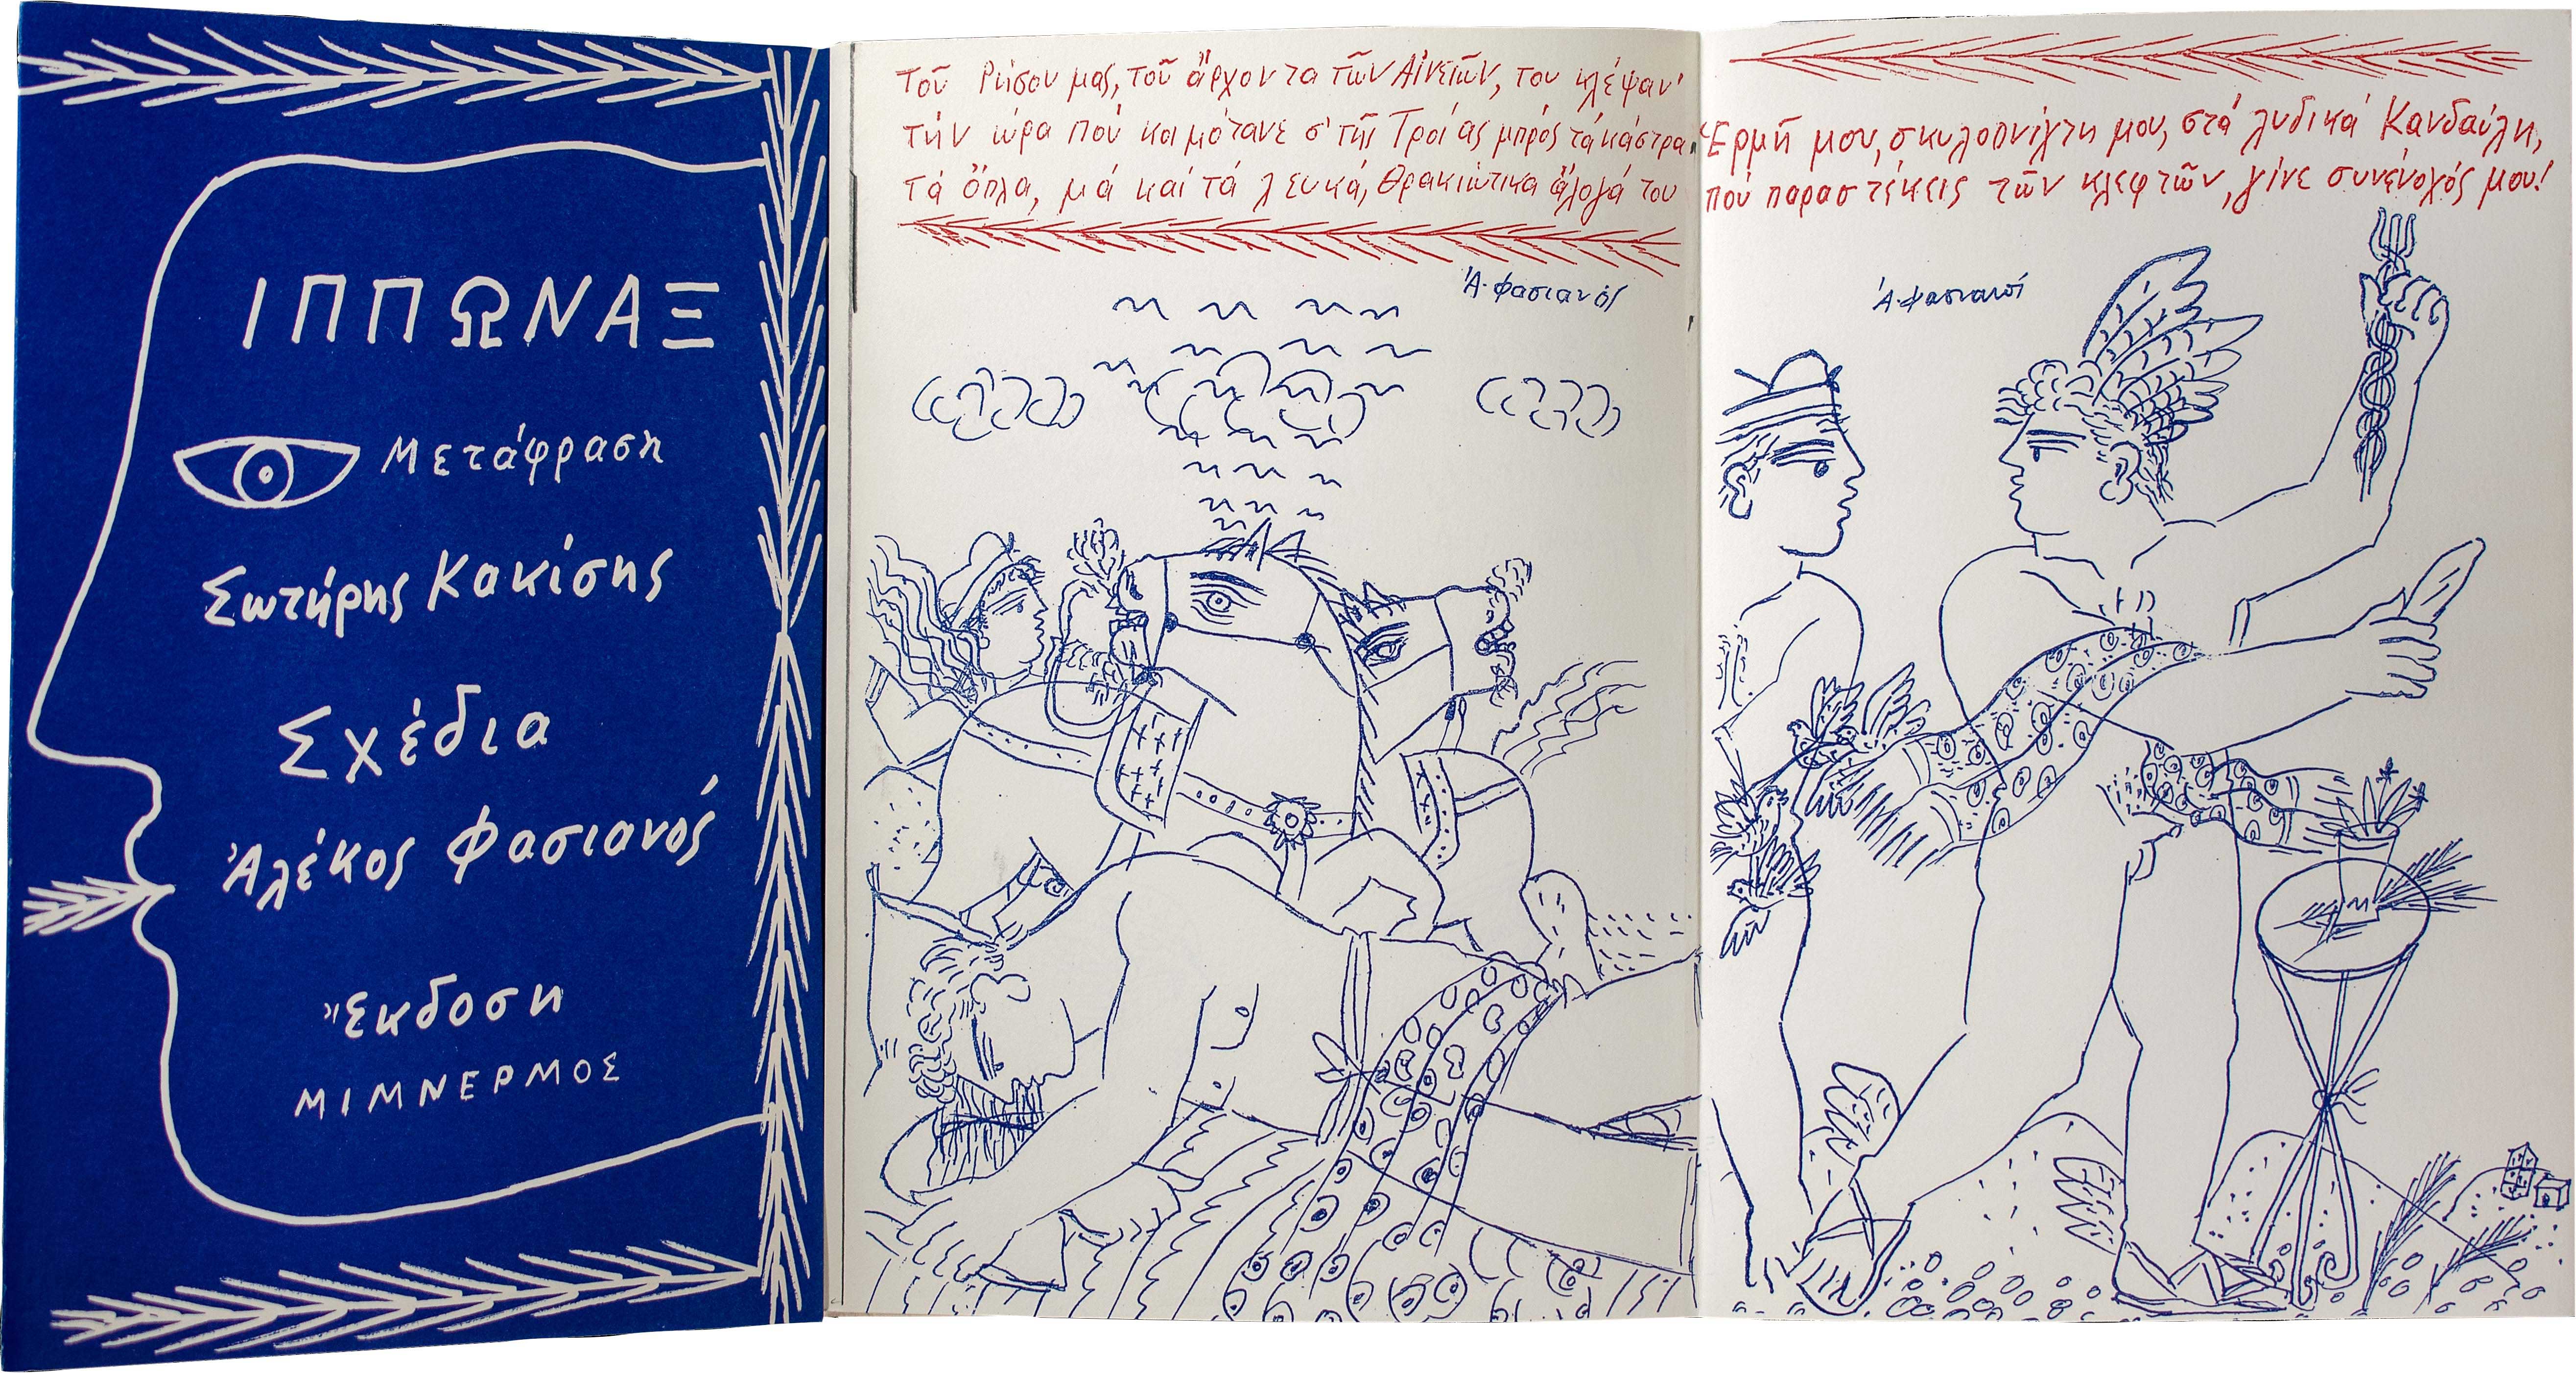 ΙΠΠΩΝΑΞ
Μετάφραση
Σωτήρης Κακίσης
Σχέδια
Ἀλέκος Φασιανός
Ἔκδοση
ΜΙΜΝΕΡΜΟΣ
Τοῦ Ρήσου μας, τοῦ ἄρχοντα τῶν Αἰνειῶν, του κλέψαν'
τήν ὥρα πού κοιμότανε σ' τῆς Τροίας μπρός τά κάστρα
τά ὅπλα, μά καί τά λευκά, Θρακιώτικα ἄλογά του
Ἀ. Φασιανός
Ἑρμῆ μου, σκυλοπνίχτη μου, στά λυδικά Κανδαύλη,
πού παραστέκεις τῶν κλεφτῶν, γίνε συνένοχός μου!
Ἀ. Φασιανός